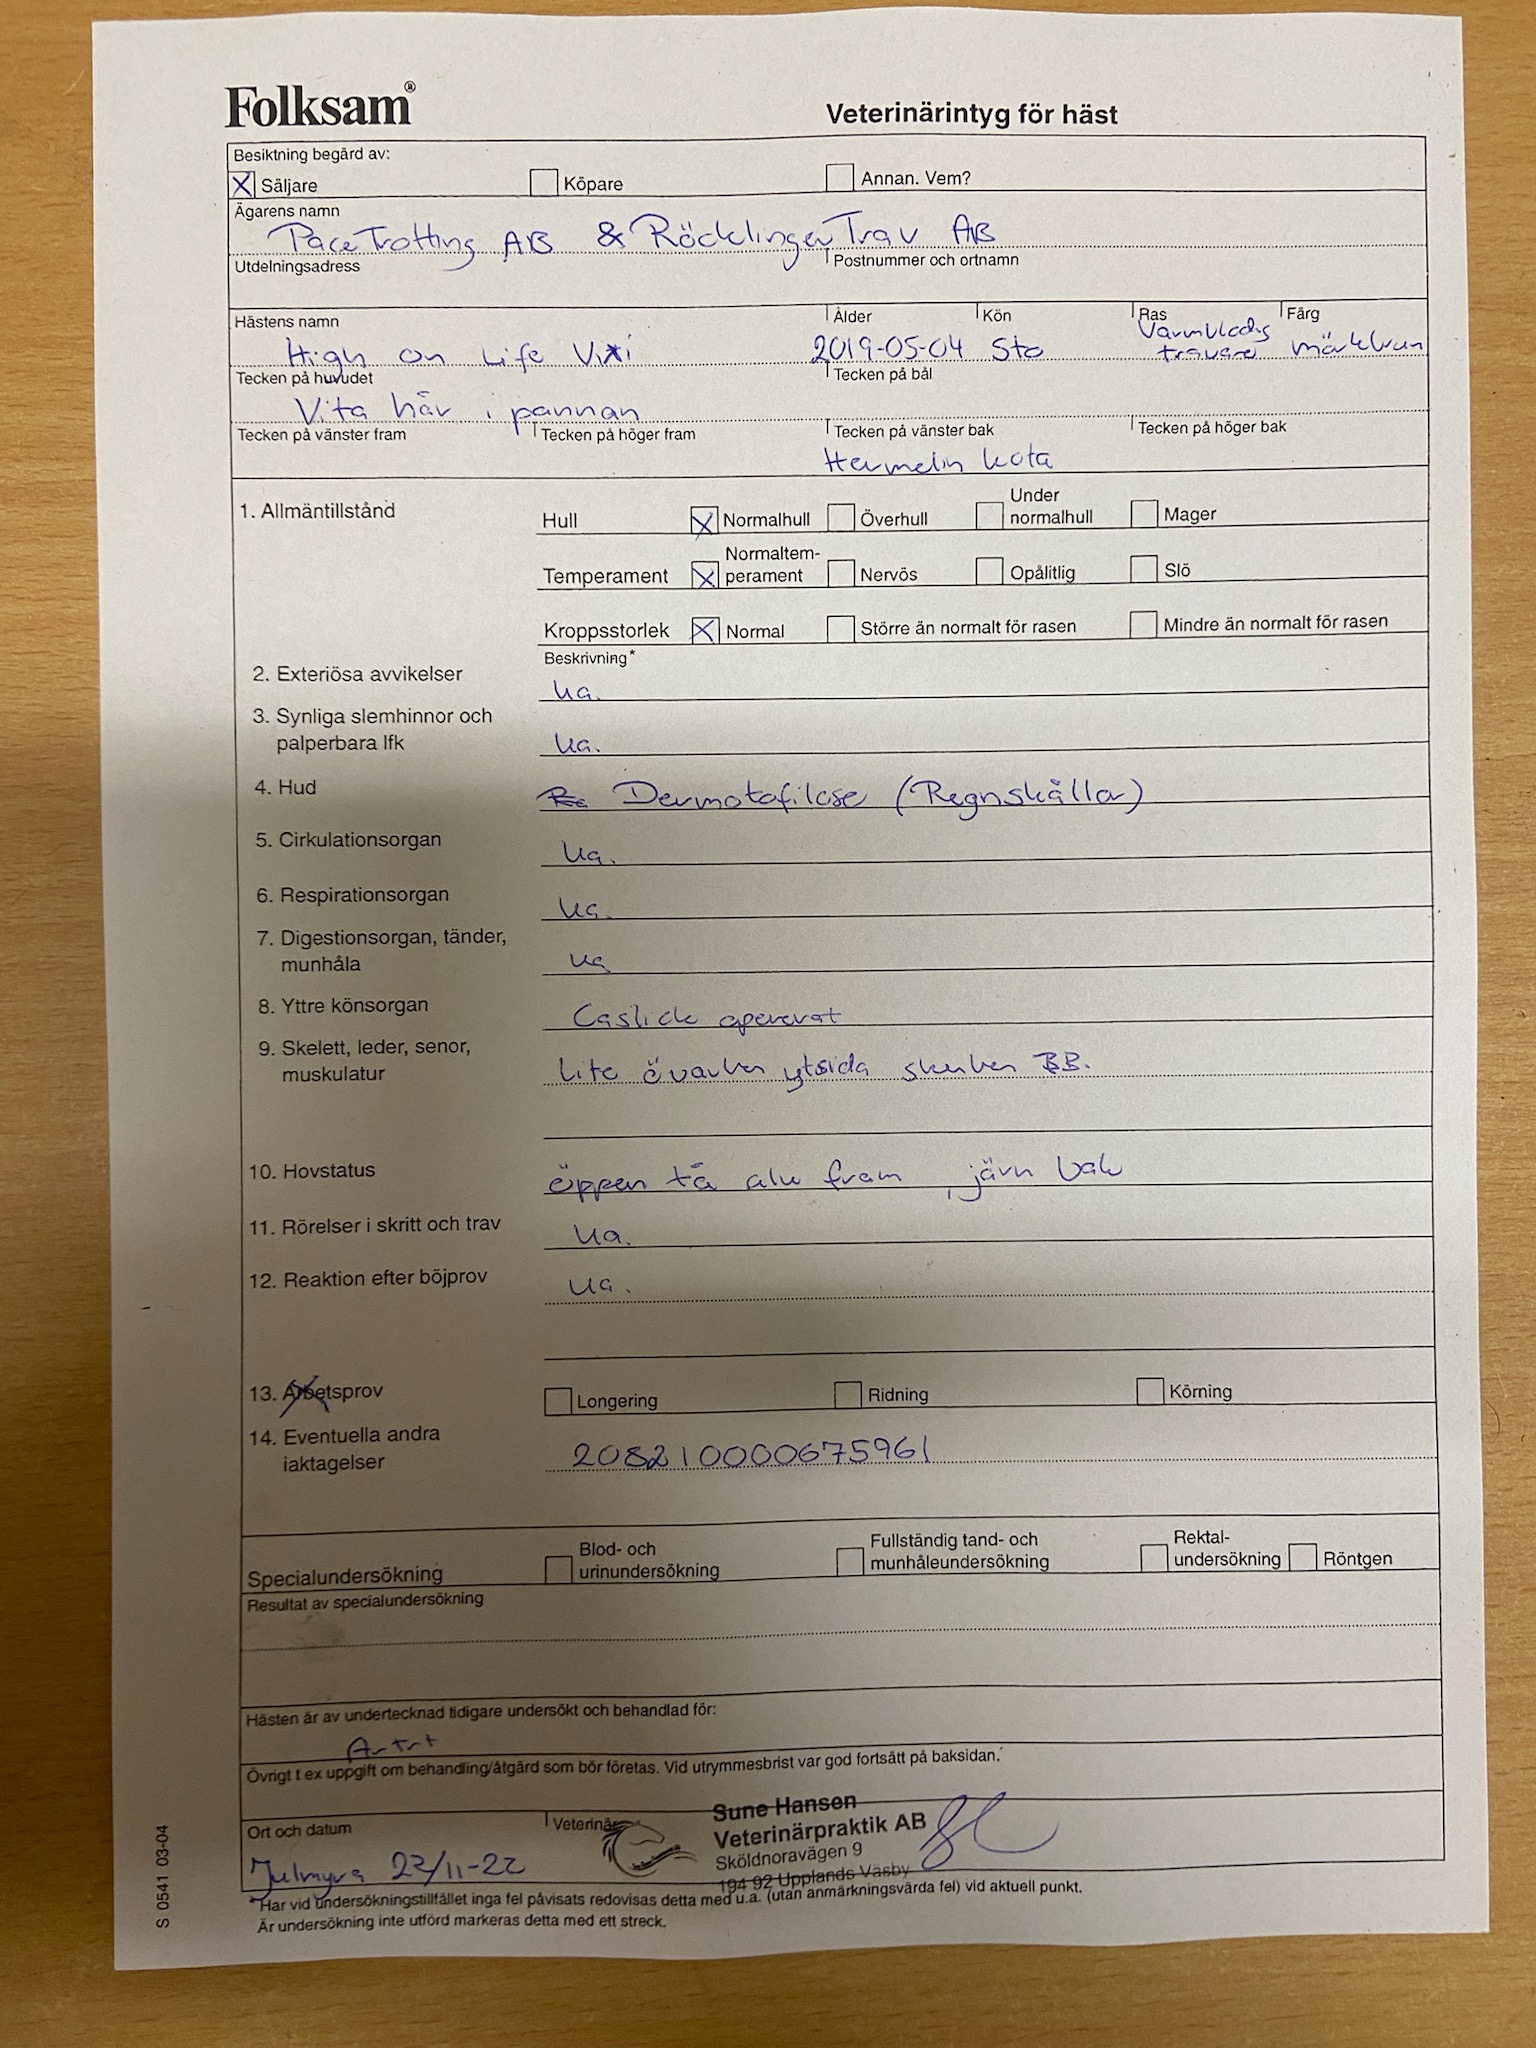 Folksam®
Veterinärintyg för häst
Besiktning begärd av:
X Säljare Köpare Annan. Vem?
Ägarens namn
PaceTrotting AB & Röcklinger Trav AB
Utdelningsadress Postnummer och ortnamn
Hästens namn Ålder Kön Ras Färg
High on Life Vixi 2019-05-04 Sto Varmblodig travare mörkbrun
Tecken på huvudet Tecken på bål
Vita hår i pannan
Tecken på vänster fram Tecken på höger fram Tecken på vänster bak Tecken på höger bak
Hermelin kota
1. Allmäntillstånd Hull X Normalhull Överhull Under normalhull Mager
Temperament X Normaltem-perament Nervös Opålitlig Slö
Kroppsstorlek X Normal Större än normalt för rasen Mindre än normalt för rasen
Beskrivning*
2. Exteriösa avvikelser ua.
3. Synliga slemhinnor och
palperbara lfk ua.
4. Hud Dermatofilose (Regnskållor)
5. Cirkulationsorgan ua.
6. Respirationsorgan ua.
7. Digestionsorgan, tänder,
munhåla ua
8. Yttre könsorgan Caslick opererat
9. Skelett, leder, senor,
muskulatur Lite överben ytsida skenben BB.
10. Hovstatus öppen tå alu fram, järn bak
11. Rörelser i skritt och trav ua.
12. Reaktion efter böjprov ua.
13. Arbetsprov Longering Ridning Körning
14. Eventuella andra
iaktagelser 208210000675961
Specialundersökning Blod- och urinundersökning Fullständig tand- och munhåleundersökning Rektal-undersökning Röntgen
Resultat av specialundersökning
Hästen är av undertecknad tidigare undersökt och behandlad för:
Artrit
Övrigt t ex uppgift om behandling/åtgärd som bör företas. Vid utrymmesbrist var god fortsätt på baksidan.
Ort och datum Veterinär
Sune Hansen
Veterinärpraktik AB
Sköldnoravägen 9
194 92 Upplands Väsby
Julmyra 22/11-22
*Har vid undersökningstillfället inga fel påvisats redovisas detta med u.a. (utan anmärkningsvärda fel) vid aktuell punkt.
Är undersökning inte utförd markeras detta med ett streck.
S 0541 03-04